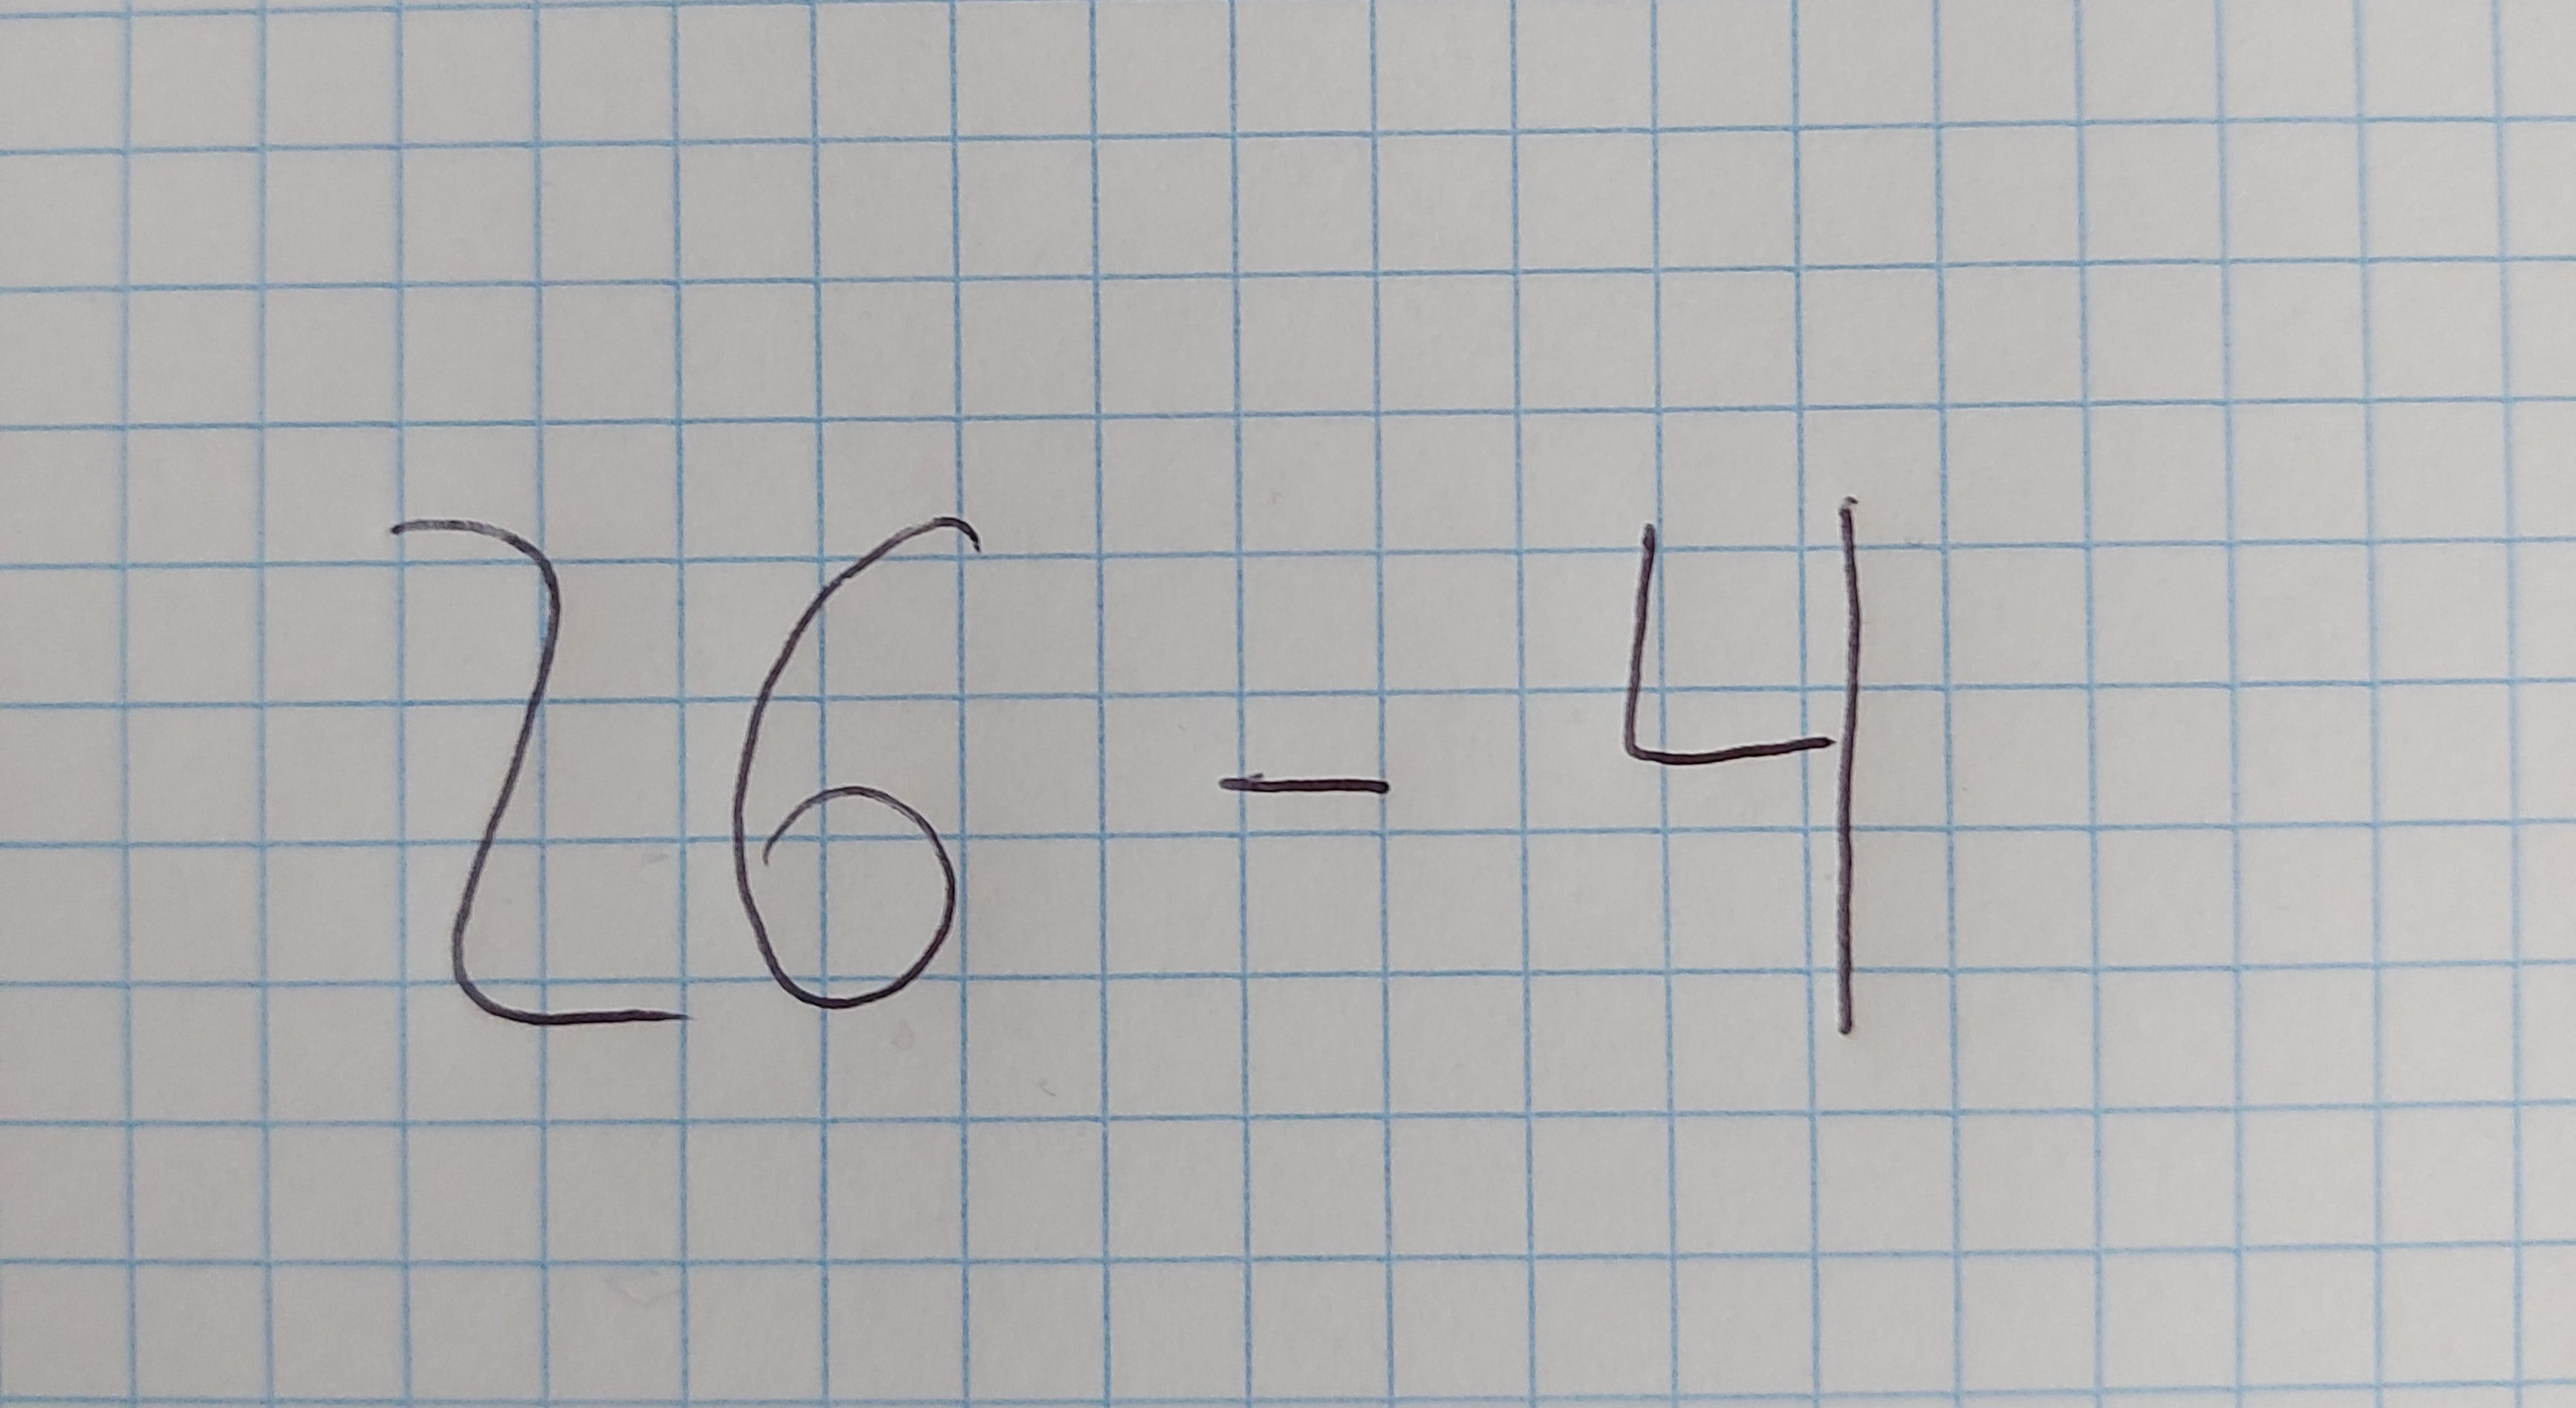 26 - 4